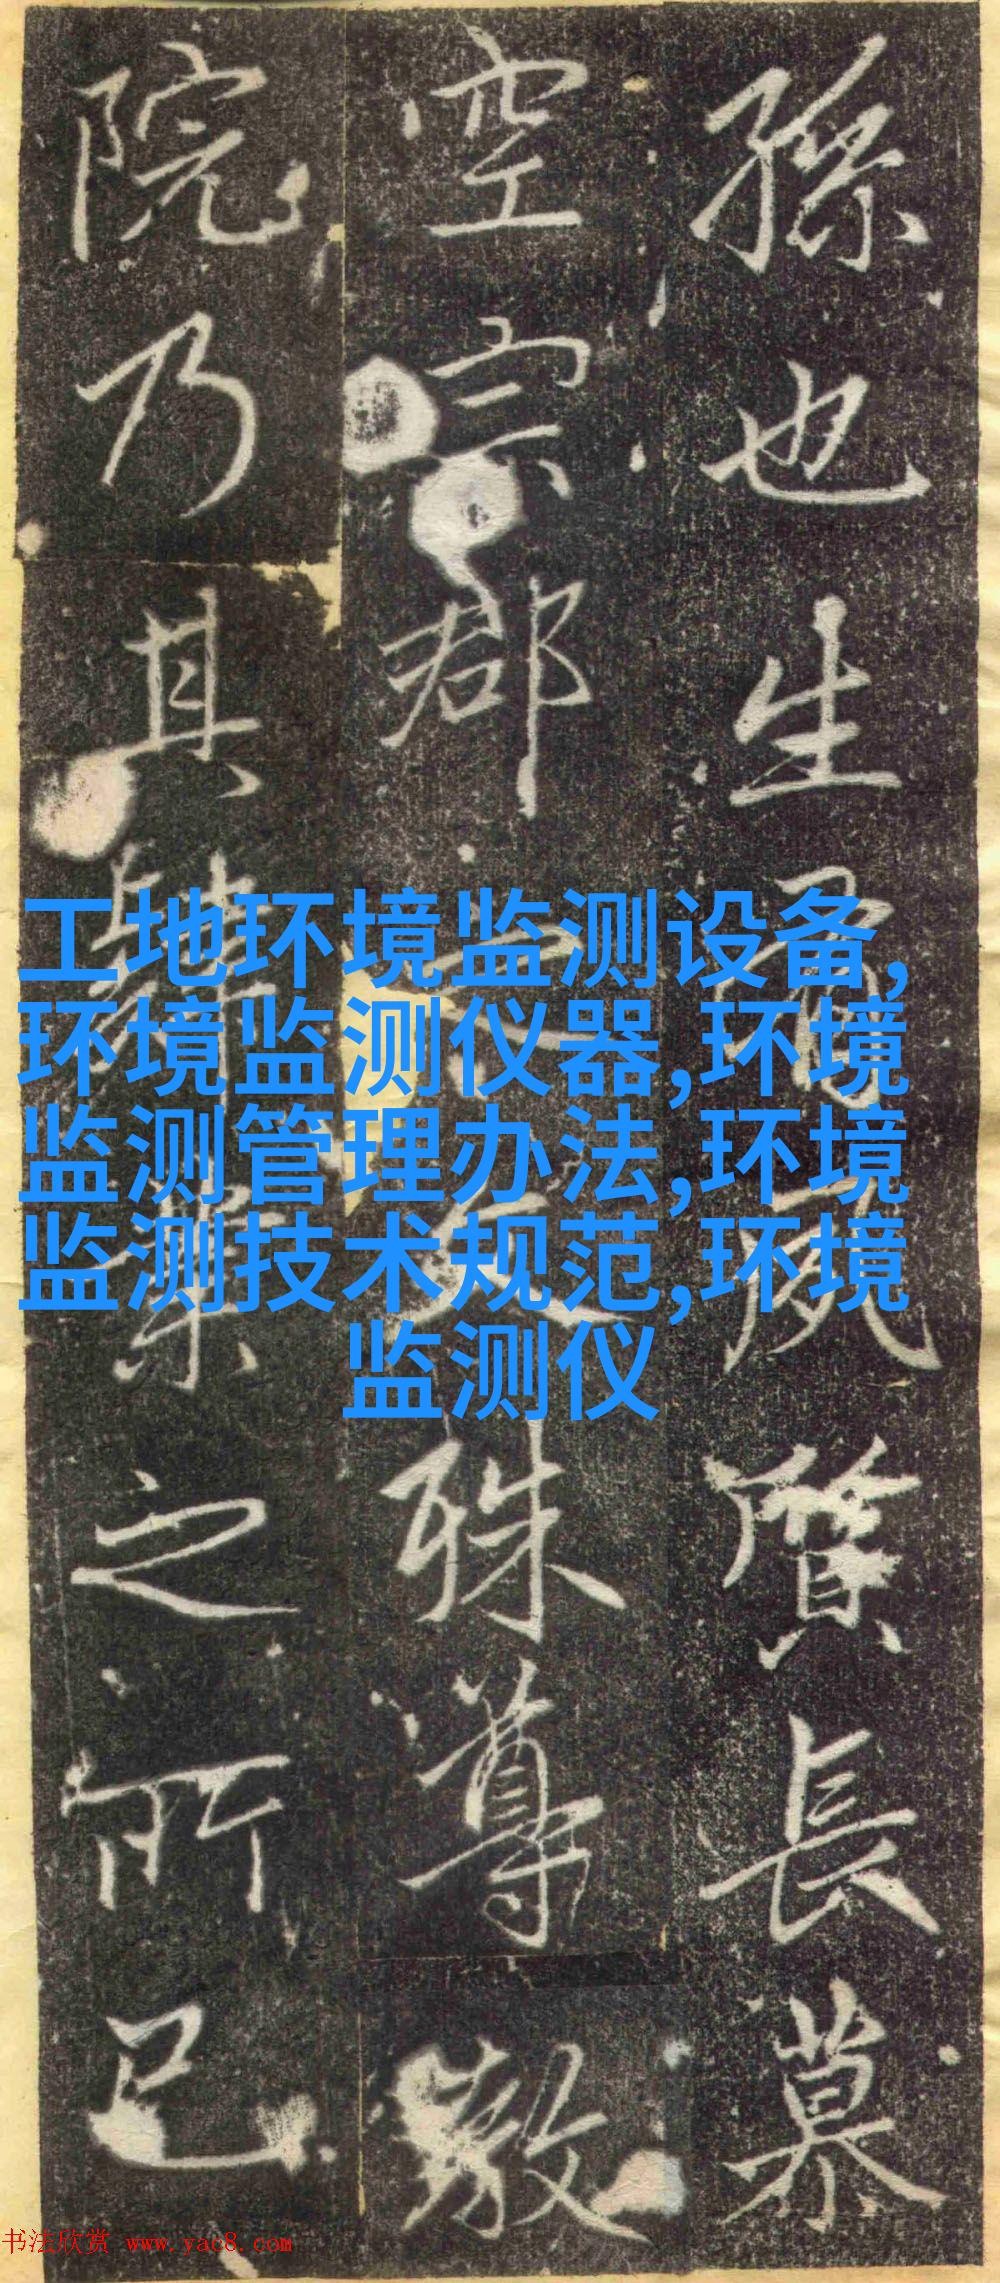 孫也生夙質長慕
空宗郡文殊尊教
院乃其肄業之所已
工地环境监测设备,
环境监测仪器,环境
监测管理办法,环境
监测技术规范,环境
监测仪
书法欣赏 www.yac8.com